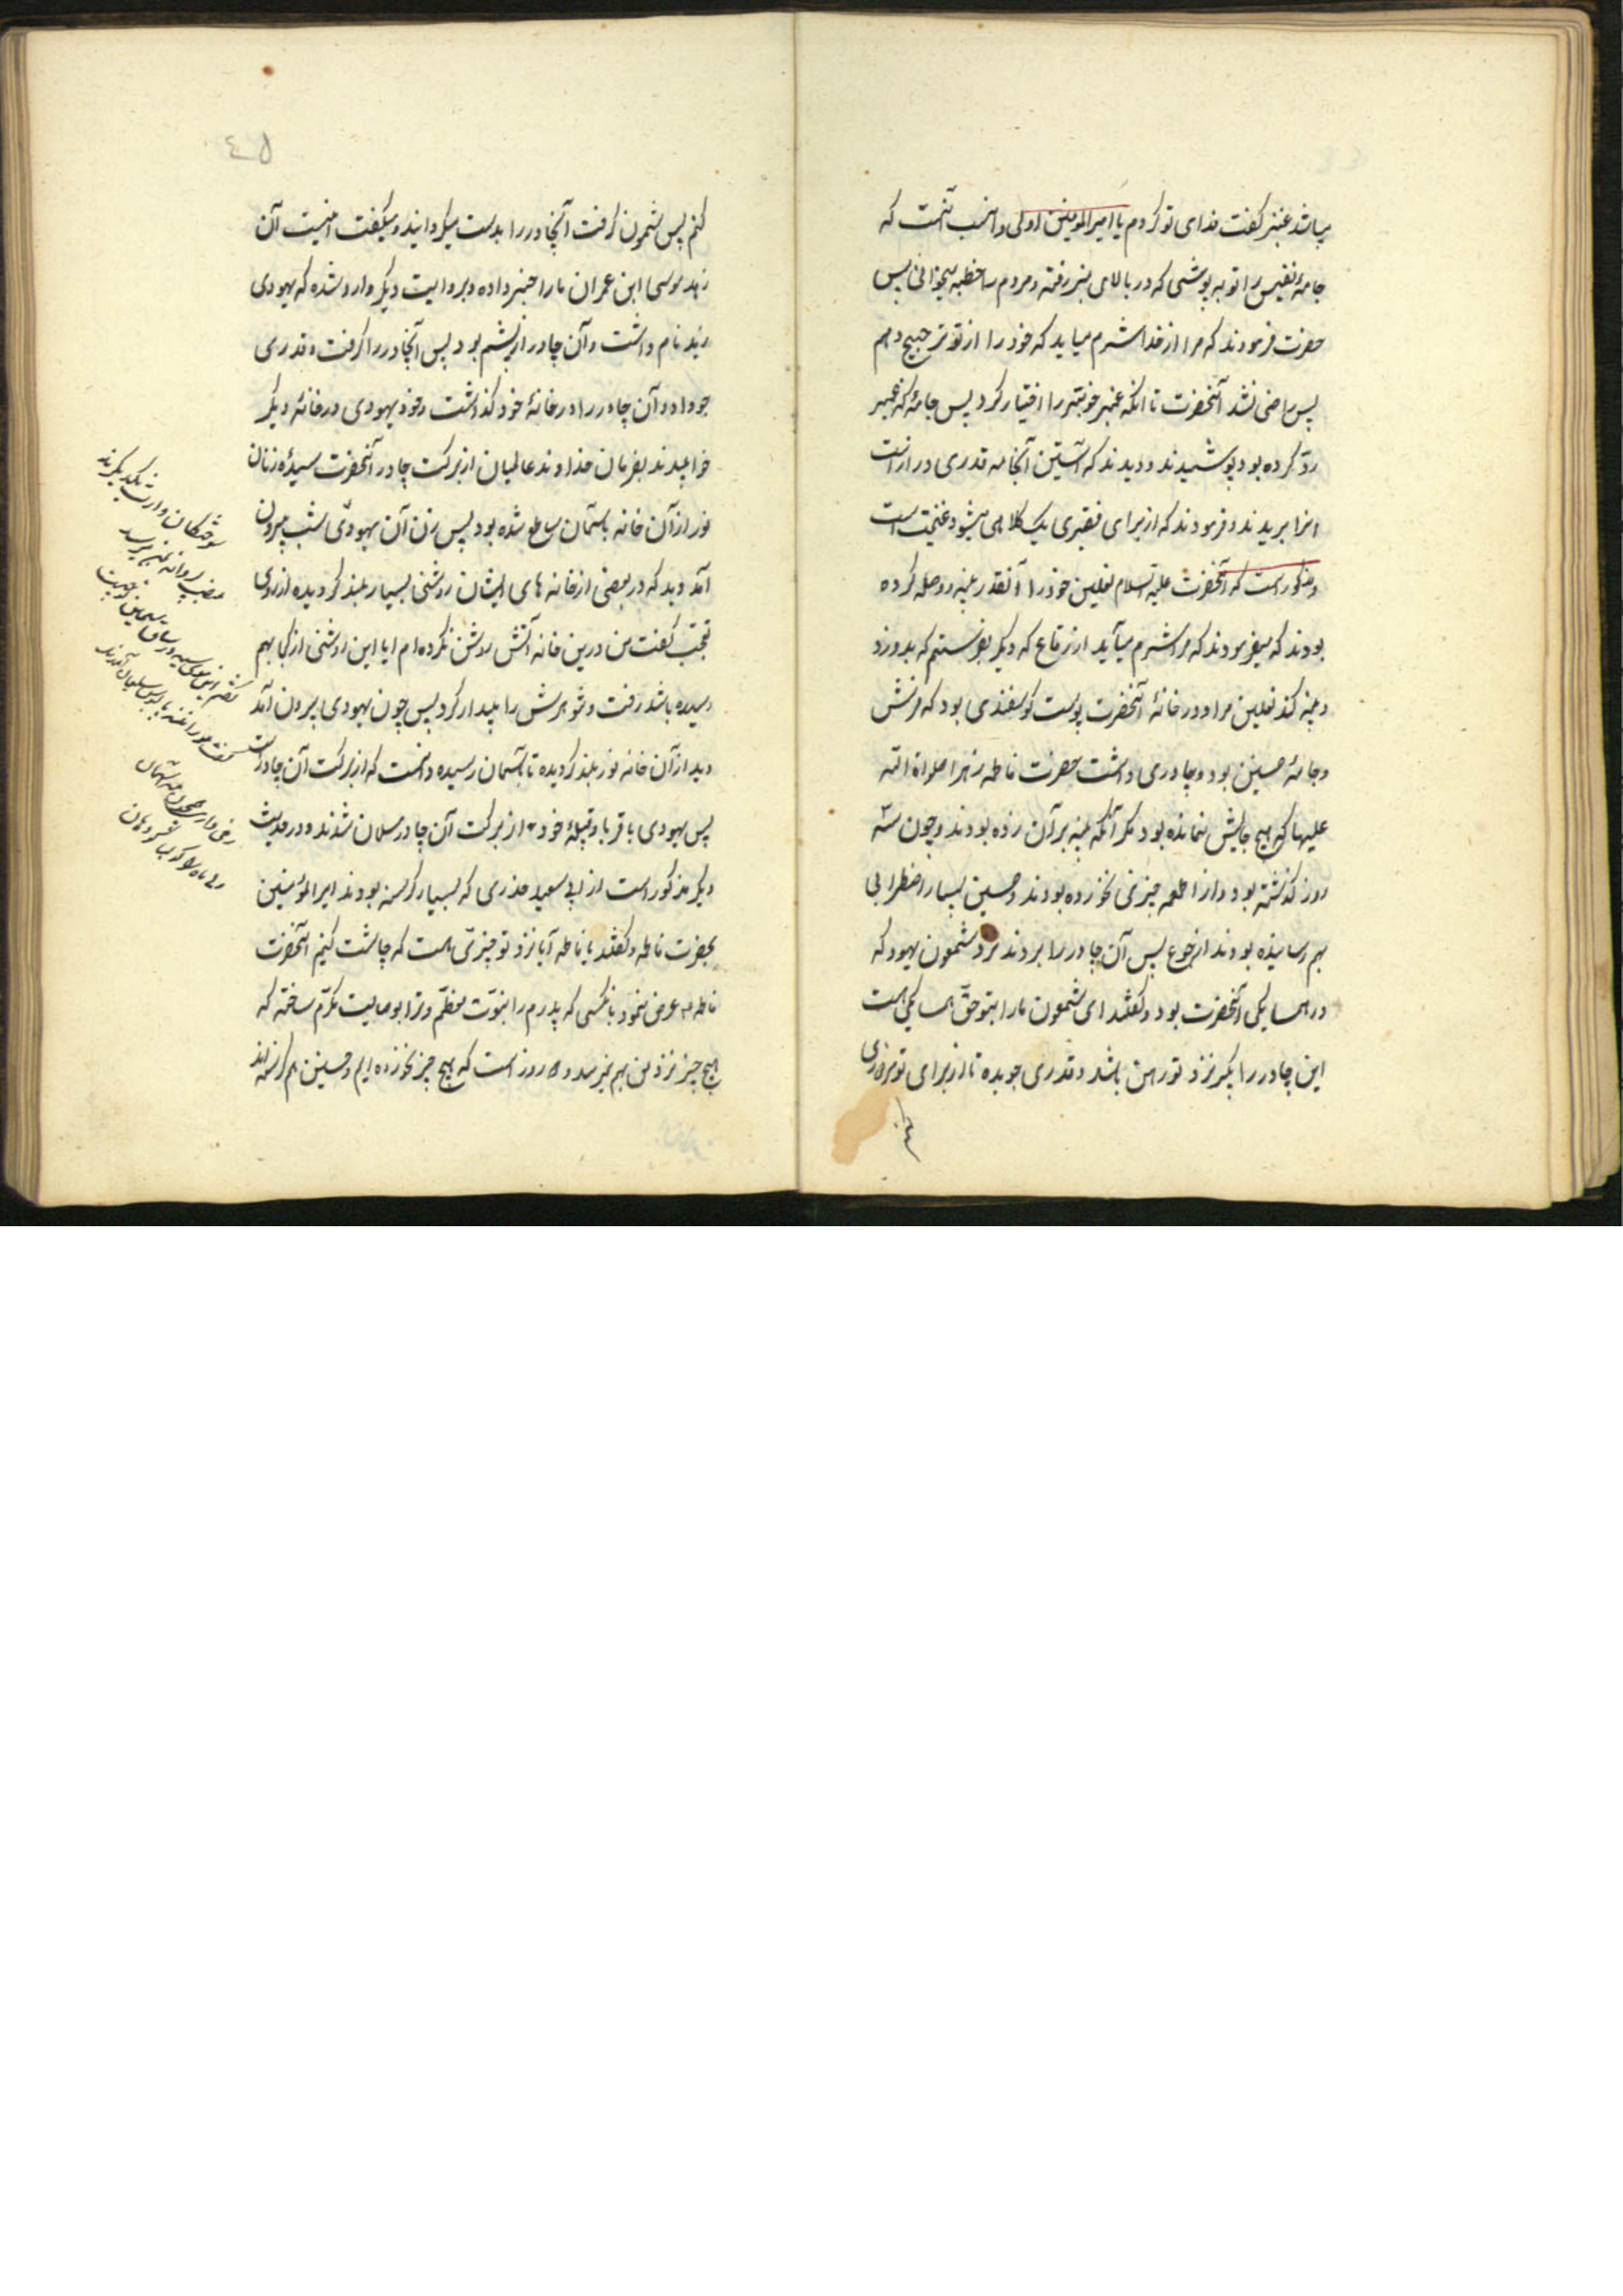 میباشد عنبر گفت فدای تو کردم یا امیرالمومنین اولی و انسب آنست که
جامهٔ نفیس را تو بپوشی که در بالای منبر رفته و مردم را خطبه میخوانی پس
حضرت فرمودند که مرا از خدا شرم میاید که خود را از تو ترجیح دهم
پس راضی نشد آنحضرت تا انکه عنبر خوبتر را اختیار کرد پس جامهٔ که عنبر
رد کرده بود پوشیدند و دیدند که آستین آنجامه قدری درازاست
انرا بریدند و فرمودند که از برای فقیری یک کلاهی میشود غنیمت است
و مذکور است که آنحضرت علیه السلام نعلین خود را آنقدر پنبه و وصله کرده
بودند که میفرمودند که مرا شرم میآید از رقاع که دیگر بفرستم که بدوزد
و پنبه کند نعلین مرا و در خانهٔ آنحضرت پوست کوسفندی بود که فرش
و جامهٔ حسنین بود و چادری داشت حضرت فاطمه زهرا صلواة الله
علیها که هیچ جایش نمانده بود مکر آنکه پنبه بر آن زده بودند و چون سه
روز کذشته بود و از اطعمه چیزی نخورده بودند و حسنین بسیار اضطرابی
بهم رسانیده بودند از جوع پس آن چادر را بردند نزد شمعون یهود که
در همسایکی آنحضرت بود و کفتند ای شمعون ما را بتو حق همسایکی است
این چادر را بکیر نزد تو رهن باشد و قدری جو بده تا از برای تو
کنم پس شمعون کرفت آنچادر را بدست میکردانید و میکفت اینست آن
زهد موسی ابن عمران ما را خبر داده و بروایت دیکر وارد شده که یهودی
زید نام داشت و آن چادر از پشم بود پس آنچادر را کرفت و قدری
جو داد و آن چادر را در خانهٔ خود کذاشت و خود یهودی در خانهٔ دیکر
خوابیدند بفرمان خداوند عالمیان از برکت چادر آنحضرت سیدهٔ زنان
نور از آن خانه باسمان ساطع شده بود پس زن آن یهودی شب بیرون
آمد دید که در بعضی از خانه های ایشان روشنی بسیار بلند کردیده از روی
تعجب کفت من درین خانه آتش روشن نکرده ام ایا این روشنی از کجا بهم
رسیده باشد رفت و شوهرش را بیدار کرد پس چون یهودی بیرون آمد
دید از آن خانه نور بلند کردیده تا بآسمان رسیده دانست که از برکت آن چادر است
پس یهودی با قربا و قبیلهٔ خود از برکت آن چادر مسلمان شدند و در حدیث
دیکر مذکور است از ابی سعید خدری که بسیار کرسنه بودند امیرالمؤمنین
بحضرت فاطمه و کفتند یا فاطمه آیا نزد تو چیزی هست که چاشت کنیم آنحضرت
فاطمه عرض نمود بآنکسی که پدرم را بنبوت معظم و ترا بوصایت مکرم ساخته که
هیچ چیز نزد من بهم نمیرسد و دو روز است که هیچ چیز نخورده ایم و حسنین هم کرسنه اند
٤٥
سوختکان وارث یکدیکرند